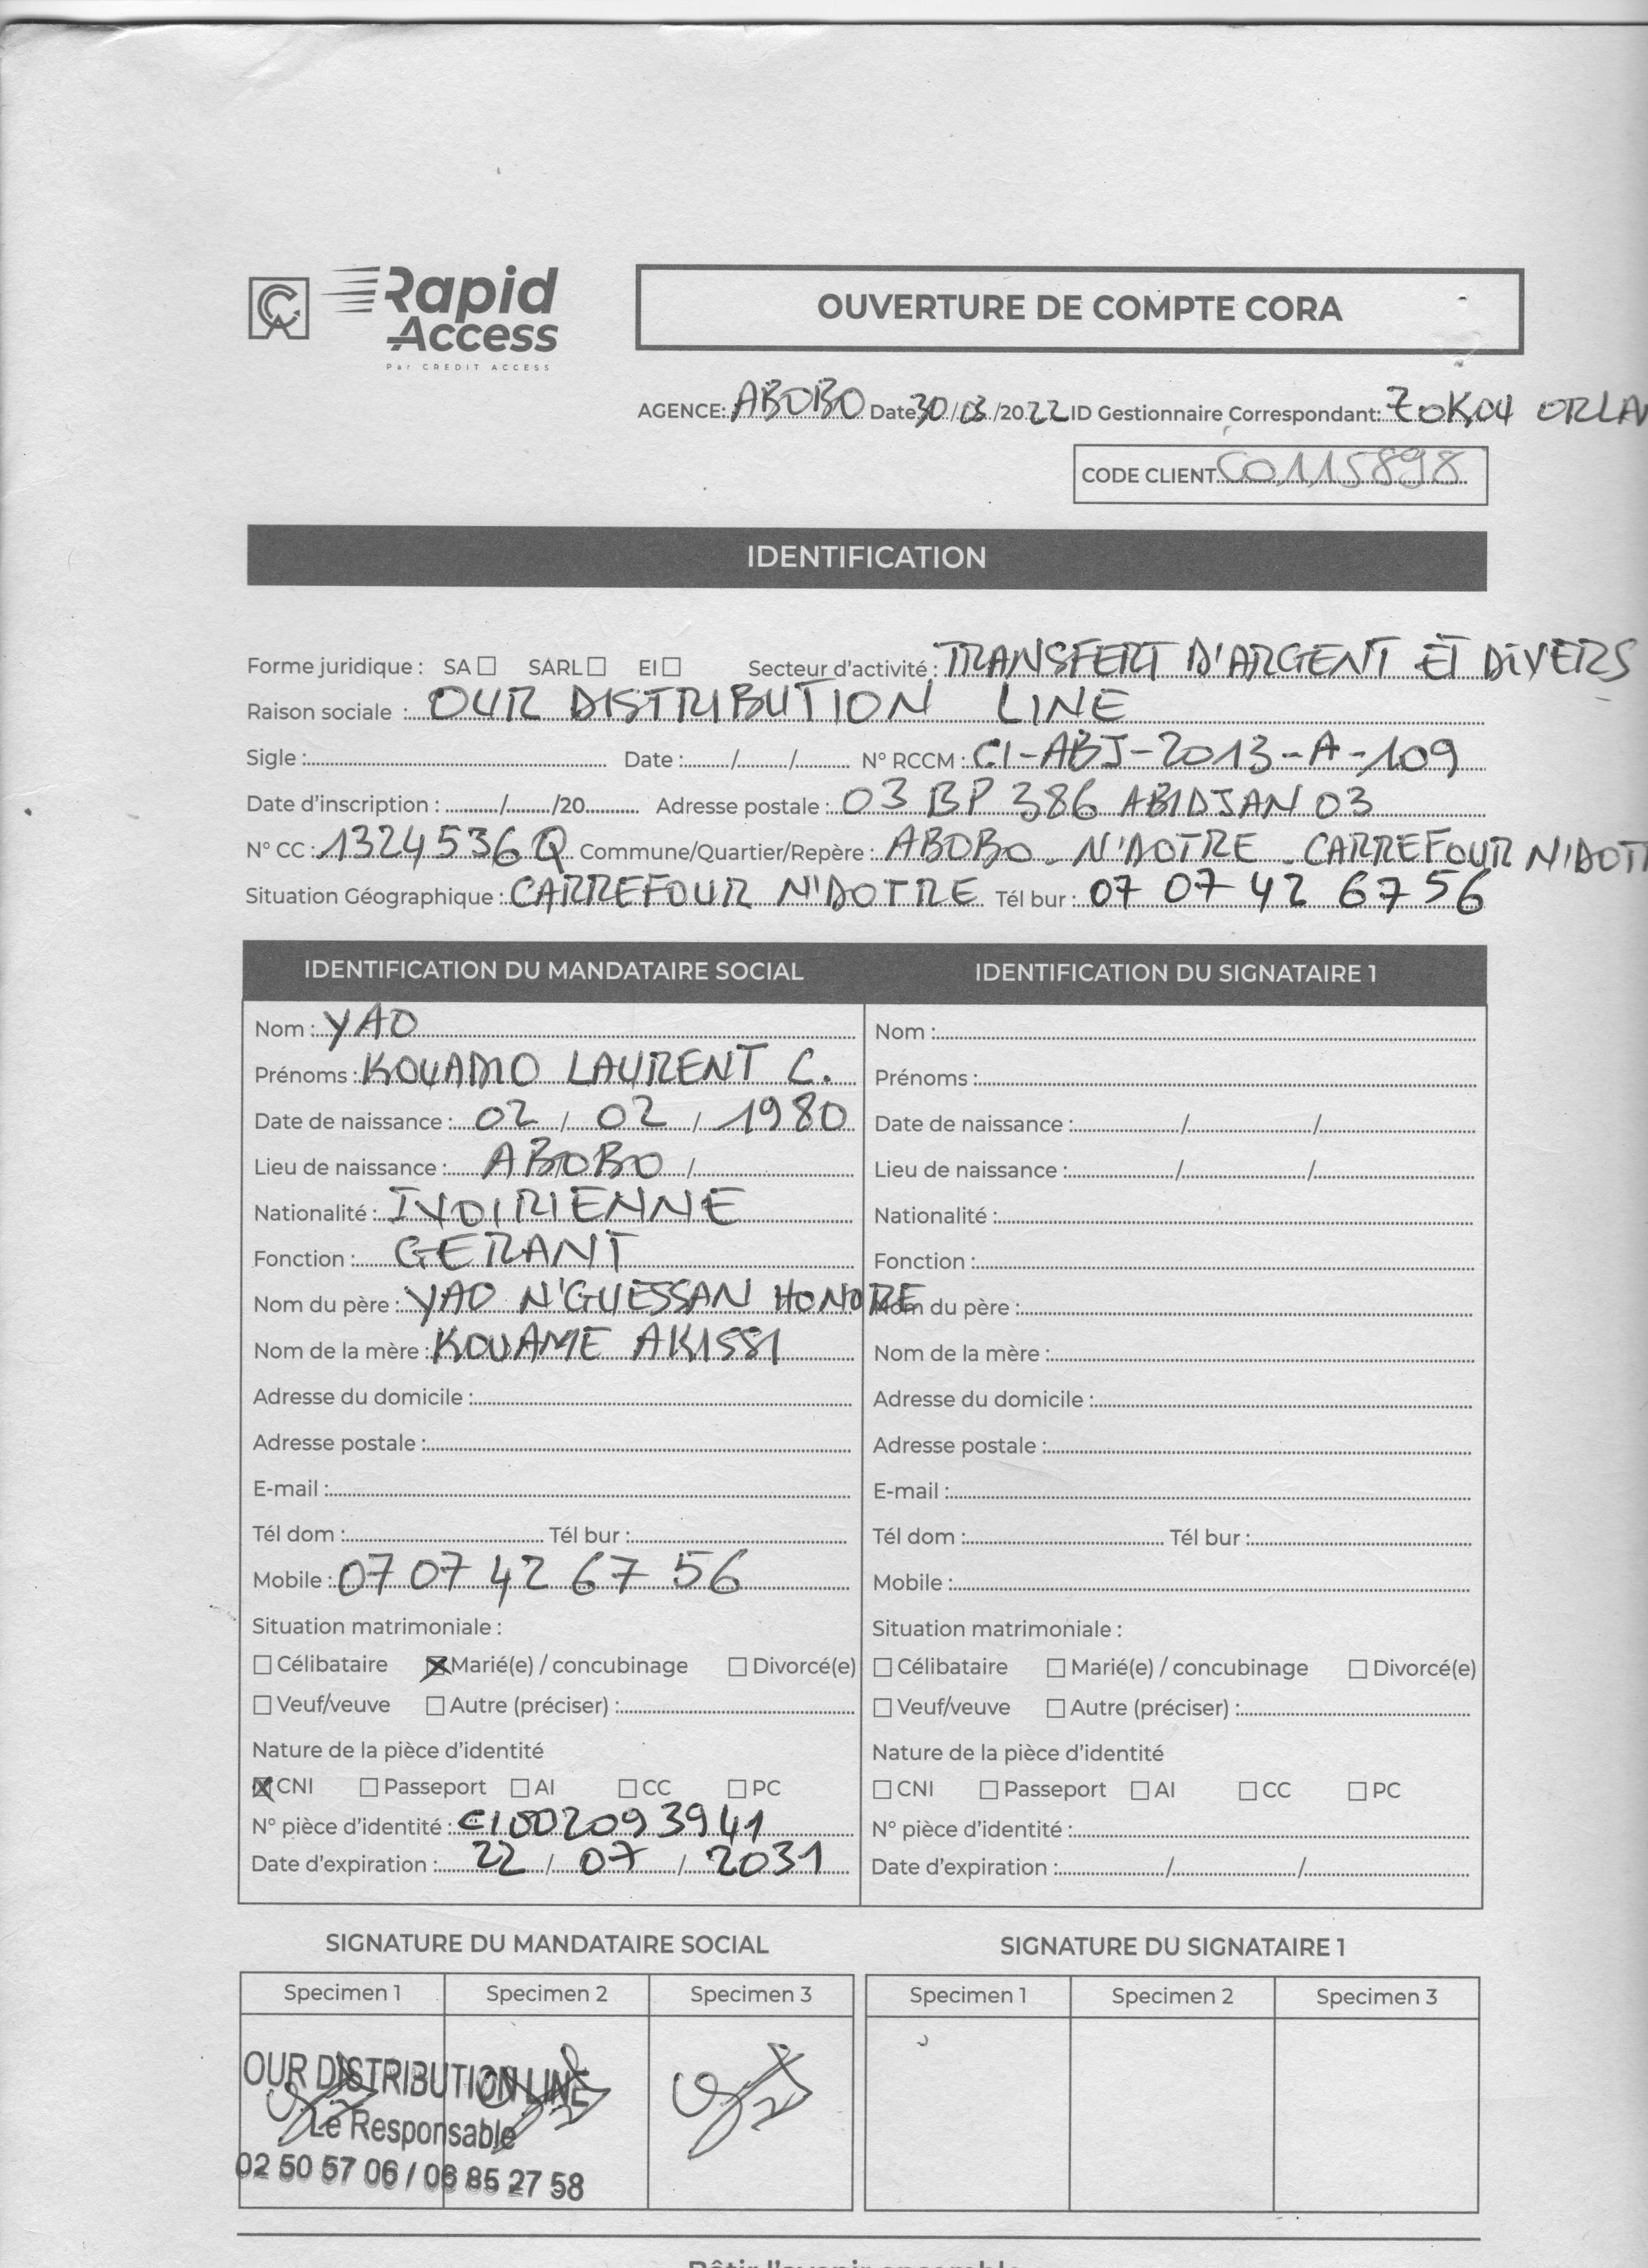 CA Rapid Access
Par CREDIT ACCESS
OUVERTURE DE COMPTE CORA
AGENCE: ABOBO Date 30/03/2022 ID Gestionnaire Correspondant: ZOKOU
CODE CLIENT C0115898
IDENTIFICATION
Forme juridique : SA ☐ SARL ☐ EI ☐ Secteur d'activité : TRANSFERT D'ARGENT ET DIVERS
Raison sociale : OUR DISTRIBUTION LINE
Sigle : Date : / / N° RCCM : CI-ABJ-2013-A-109
Date d'inscription : / /20 Adresse postale : 03 BP 386 ABIDJAN 03
N° CC : 1324536 Q Commune/Quartier/Repère : ABOBO - N'DOTRE - CARREFOUR
Situation Géographique : CARREFOUR N'DOTRE Tél bur : 07 07 42 67 56
IDENTIFICATION DU MANDATAIRE SOCIAL
Nom : YAO
Prénoms : KOUADIO LAURENT C.
Date de naissance : 02 / 02 / 1980
Lieu de naissance : ABOBO /
Nationalité : IVOIRIENNE
Fonction : GERANT
Nom du père : YAO N'GUESSAN HONORE
Nom de la mère : KOUAME AKISSI
Adresse du domicile :
Adresse postale :
E-mail :
Tél dom : Tél bur :
Mobile : 07 07 42 67 56
Situation matrimoniale :
☐ Célibataire ☒ Marié(e) / concubinage ☐ Divorcé(e)
☐ Veuf/veuve ☐ Autre (préciser) :
Nature de la pièce d'identité
☒ CNI ☐ Passeport ☐ AI ☐ CC ☐ PC
N° pièce d'identité : CI002093941
Date d'expiration : 22 / 07 / 2031
IDENTIFICATION DU SIGNATAIRE 1
Nom :
Prénoms :
Date de naissance : / /
Lieu de naissance : / /
Nationalité :
Fonction :
Nom du père :
Nom de la mère :
Adresse du domicile :
Adresse postale :
E-mail :
Tél dom : Tél bur :
Mobile :
Situation matrimoniale :
☐ Célibataire ☐ Marié(e) / concubinage ☐ Divorcé(e)
☐ Veuf/veuve ☐ Autre (préciser) :
Nature de la pièce d'identité
☐ CNI ☐ Passeport ☐ AI ☐ CC ☐ PC
N° pièce d'identité :
Date d'expiration : / /
SIGNATURE DU MANDATAIRE SOCIAL
Specimen 1 Specimen 2 Specimen 3
OUR DISTRIBUTION LINE
Le Responsable
02 50 57 06 / 06 85 27 58
SIGNATURE DU SIGNATAIRE 1
Specimen 1 Specimen 2 Specimen 3
Bâtir l'avenir ensemble